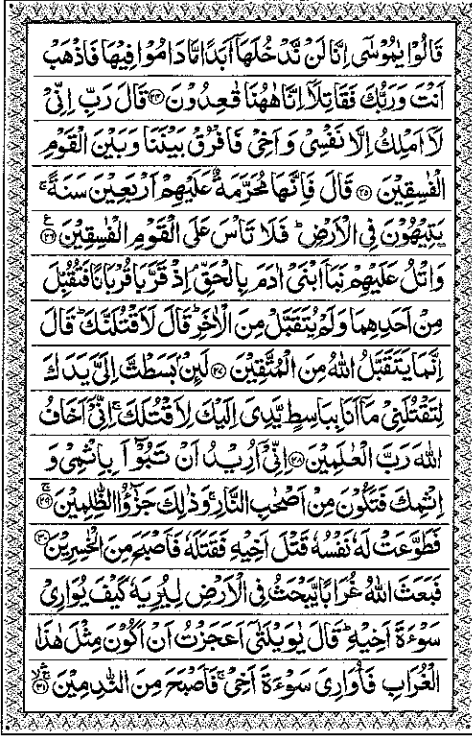 قَالُوْا يٰمُوْسٰۤى اِنَّا لَنْ نَّدْخُلَهَاۤ اَبَدًا مَّا دَامُوْا فِيْهَا فَاذْهَبْ
اَنْتَ وَرَبُّكَ فَقَاتِلَاۤ اِنَّا هٰهُنَا قٰعِدُوْنَ ﴿۲۴﴾ قَالَ رَبِّ اِنِّىْ
لَاۤ اَمْلِكُ اِلَّا نَفْسِىْ وَ اَخِىْ فَافْرُقْ بَيْنَنَا وَبَيْنَ الْقَوْمِ
الْفٰسِقِيْنَ ﴿۲۵﴾ قَالَ فَاِنَّهَا مُحَرَّمَةٌ عَلَيْهِمْ اَرْبَعِيْنَ سَنَةً ۚ
يَتِيْهُوْنَ فِى الْاَرْضِ ؕ فَلَا تَاْسَ عَلَى الْقَوْمِ الْفٰسِقِيْنَ ﴿۲۶﴾ ع
وَاتْلُ عَلَيْهِمْ نَبَاَ ابْنَىْ اٰدَمَ بِالْحَقِّ ۘ اِذْ قَرَّبَا قُرْبَانًا فَتُقُبِّلَ
مِنْ اَحَدِهِمَا وَلَمْ يُتَقَبَّلْ مِنَ الْاٰخَرِ ؕ قَالَ لَاَقْتُلَنَّكَ ؕ قَالَ
اِنَّمَا يَتَقَبَّلُ اللّٰهُ مِنَ الْمُتَّقِيْنَ ﴿۲۷﴾ لَئِنْۢ بَسَطْتَّ اِلَىَّ يَدَكَ
لِتَقْتُلَنِىْ مَاۤ اَنَا بِبَاسِطٍ يَّدِىَ اِلَيْكَ لِاَقْتُلَكَ ۚ اِنِّىْۤ اَخَافُ
اللّٰهَ رَبَّ الْعٰلَمِيْنَ ﴿۲۸﴾ اِنِّىْۤ اُرِيْدُ اَنْ تَبُوْٓءَاۡ بِاِثْمِىْ وَ
اِثْمِكَ فَتَكُوْنَ مِنْ اَصْحٰبِ النَّارِ ۚ وَذٰلِكَ جَزٰٓؤُا الظّٰلِمِيْنَ ﴿۲۹﴾ ۚ
فَطَوَّعَتْ لَهٗ نَفْسُهٗ قَتْلَ اَخِيْهِ فَقَتَلَهٗ فَاَصْبَحَ مِنَ الْخٰسِرِيْنَ ﴿۳۰﴾
فَبَعَثَ اللّٰهُ غُرَابًا يَّبْحَثُ فِى الْاَرْضِ لِيُرِيَهٗ كَيْفَ يُوَارِىْ
سَوْءَةَ اَخِيْهِ ؕ قَالَ يٰوَيْلَتٰۤى اَعَجَزْتُ اَنْ اَكُوْنَ مِثْلَ هٰذَا
الْغُرَابِ فَاُوَارِىَ سَوْءَةَ اَخِىْ ۚ فَاَصْبَحَ مِنَ النّٰدِمِيْنَ ﴿۳۱﴾